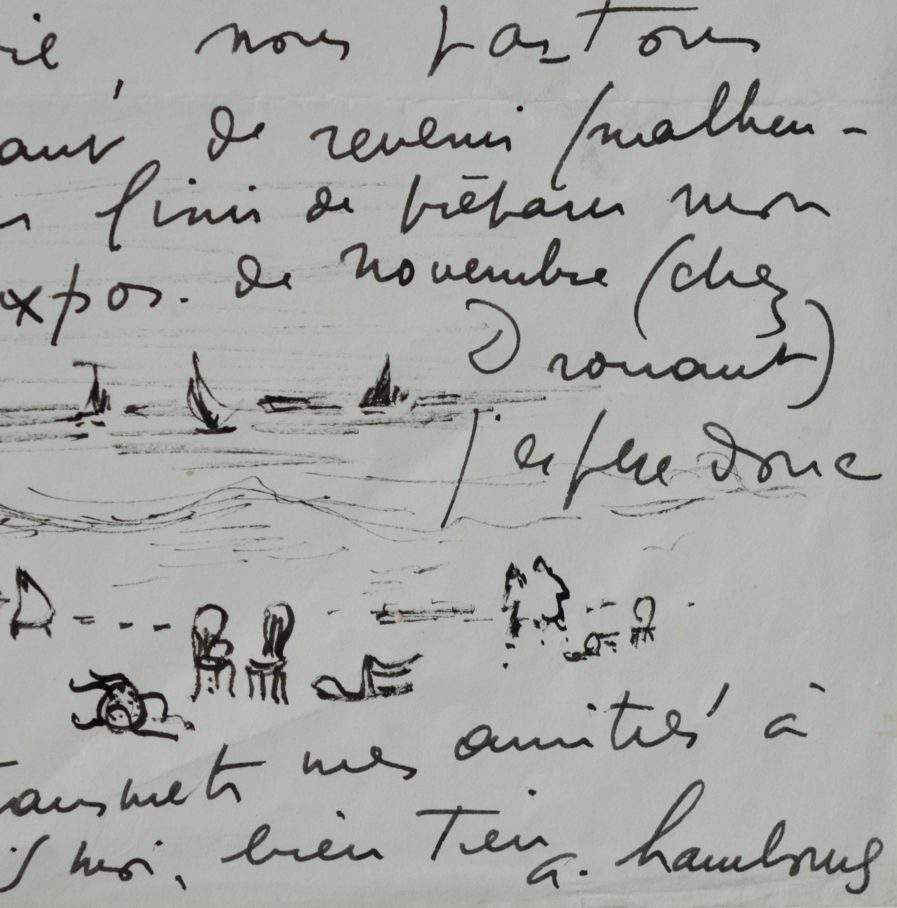 rie, nous partons
avant de revenir (malheu-
finir de préparer mon
expos. de novembre (chez
Drouant)
j'espère donc
transmets mes amitiés à
moi, bien tien
a. hambourg